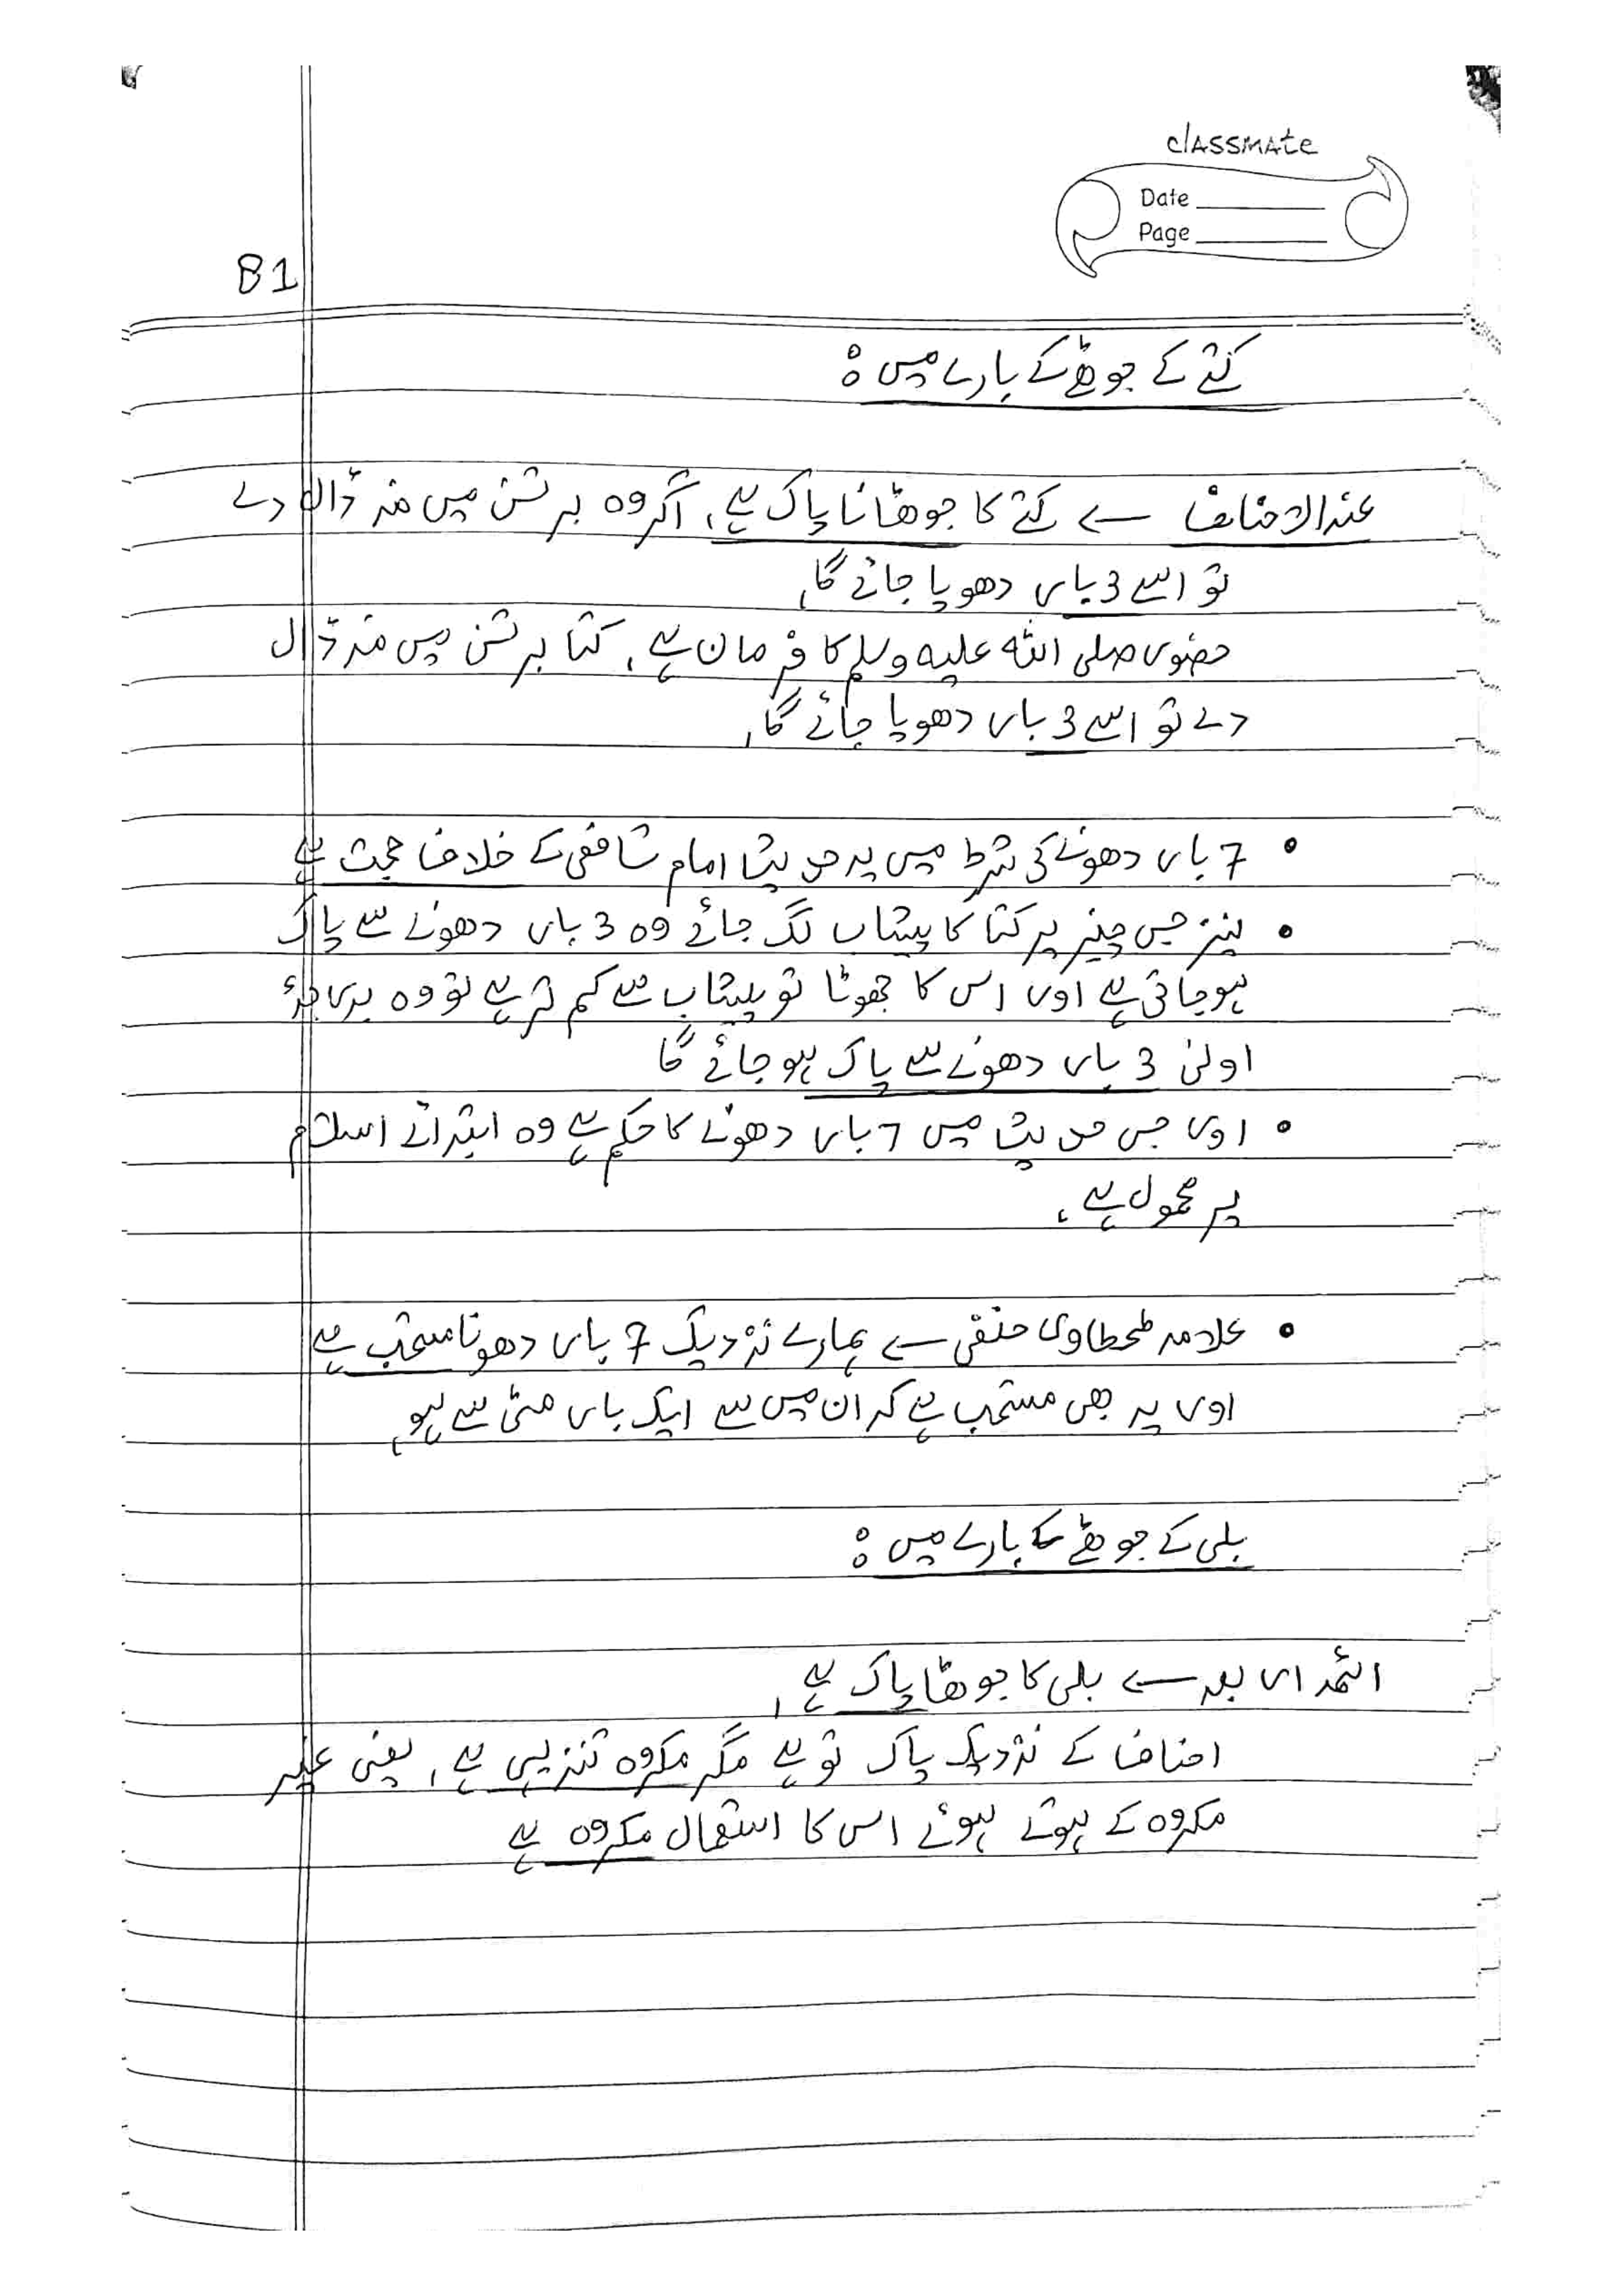 classmate
Date
Page
81
کتے کے جوٹھے کے بارے میں :
عند الاحناف ← کتے کا جوٹھا ناپاک ہے، اگر وہ برتن میں منہ ڈال دے
تو اسے 3 بار دھویا جائے گا،
حضور صلی اللہ علیہ وسلم کا فرمان ہے، کتا برتن میں منہ ڈال
دے تو اسے 3 بار دھویا جائے گا،
• 7 بار دھونے کی شرط میں یہ حدیث امام شافعی کے خلاف حجت ہے
• نیز جس چیز پر کتا کا پیشاب لگ جائے وہ 3 بار دھونے سے پاک
ہو جاتی ہے اور اس کا جھوٹا تو پیشاب سے کم تر ہے تو وہ بدرجۂ
اولیٰ 3 بار دھونے سے پاک ہو جائے گا
• اور جس حدیث میں 7 بار دھونے کا حکم ہے وہ ابتدائے اسلام
پر محمول ہے،
• علامہ طحطاوی حنفی ← ہمارے نزدیک 7 بار دھونا مستحب ہے
اور یہ بھی مستحب ہے کہ ان میں سے ایک بار مٹی سے ہو،
بلی کے جوٹھے کے بارے میں :
ائمہ اربعہ ← بلی کا جوٹھا پاک ہے،
احناف کے نزدیک پاک تو ہے مگر مکروہ تنزیہی ہے، یعنی غیر
مکروہ کے ہوتے ہوئے اس کا استعمال مکروہ ہے